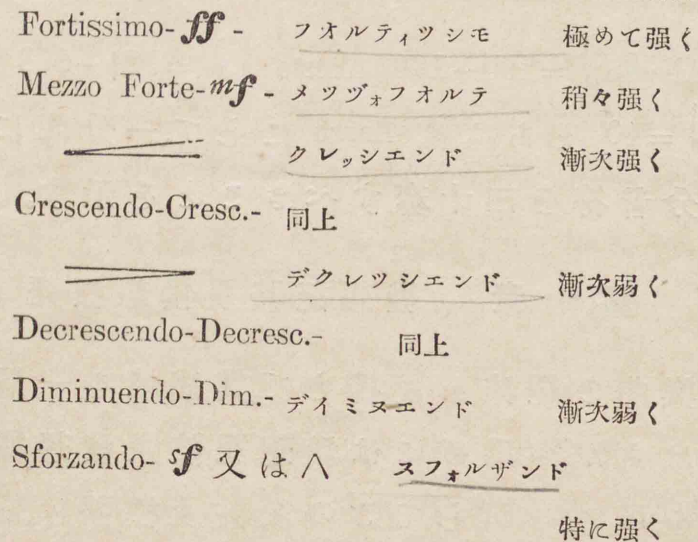 Fortissimo-ff - フオルティツシモ 極めて强く
Mezzo Forte-mf - メツヅォフオルテ 稍々强く
クレッシエンド 漸次强く
Crescendo-Cresc.- 同上
デクレツシエンド 漸次弱く
Decrescendo-Decresc.- 同上
Diminuendo-Dim.- デイミヌエンド 漸次弱く
Sforzando- sf 又は ∧ スフォルザンド
特に强く